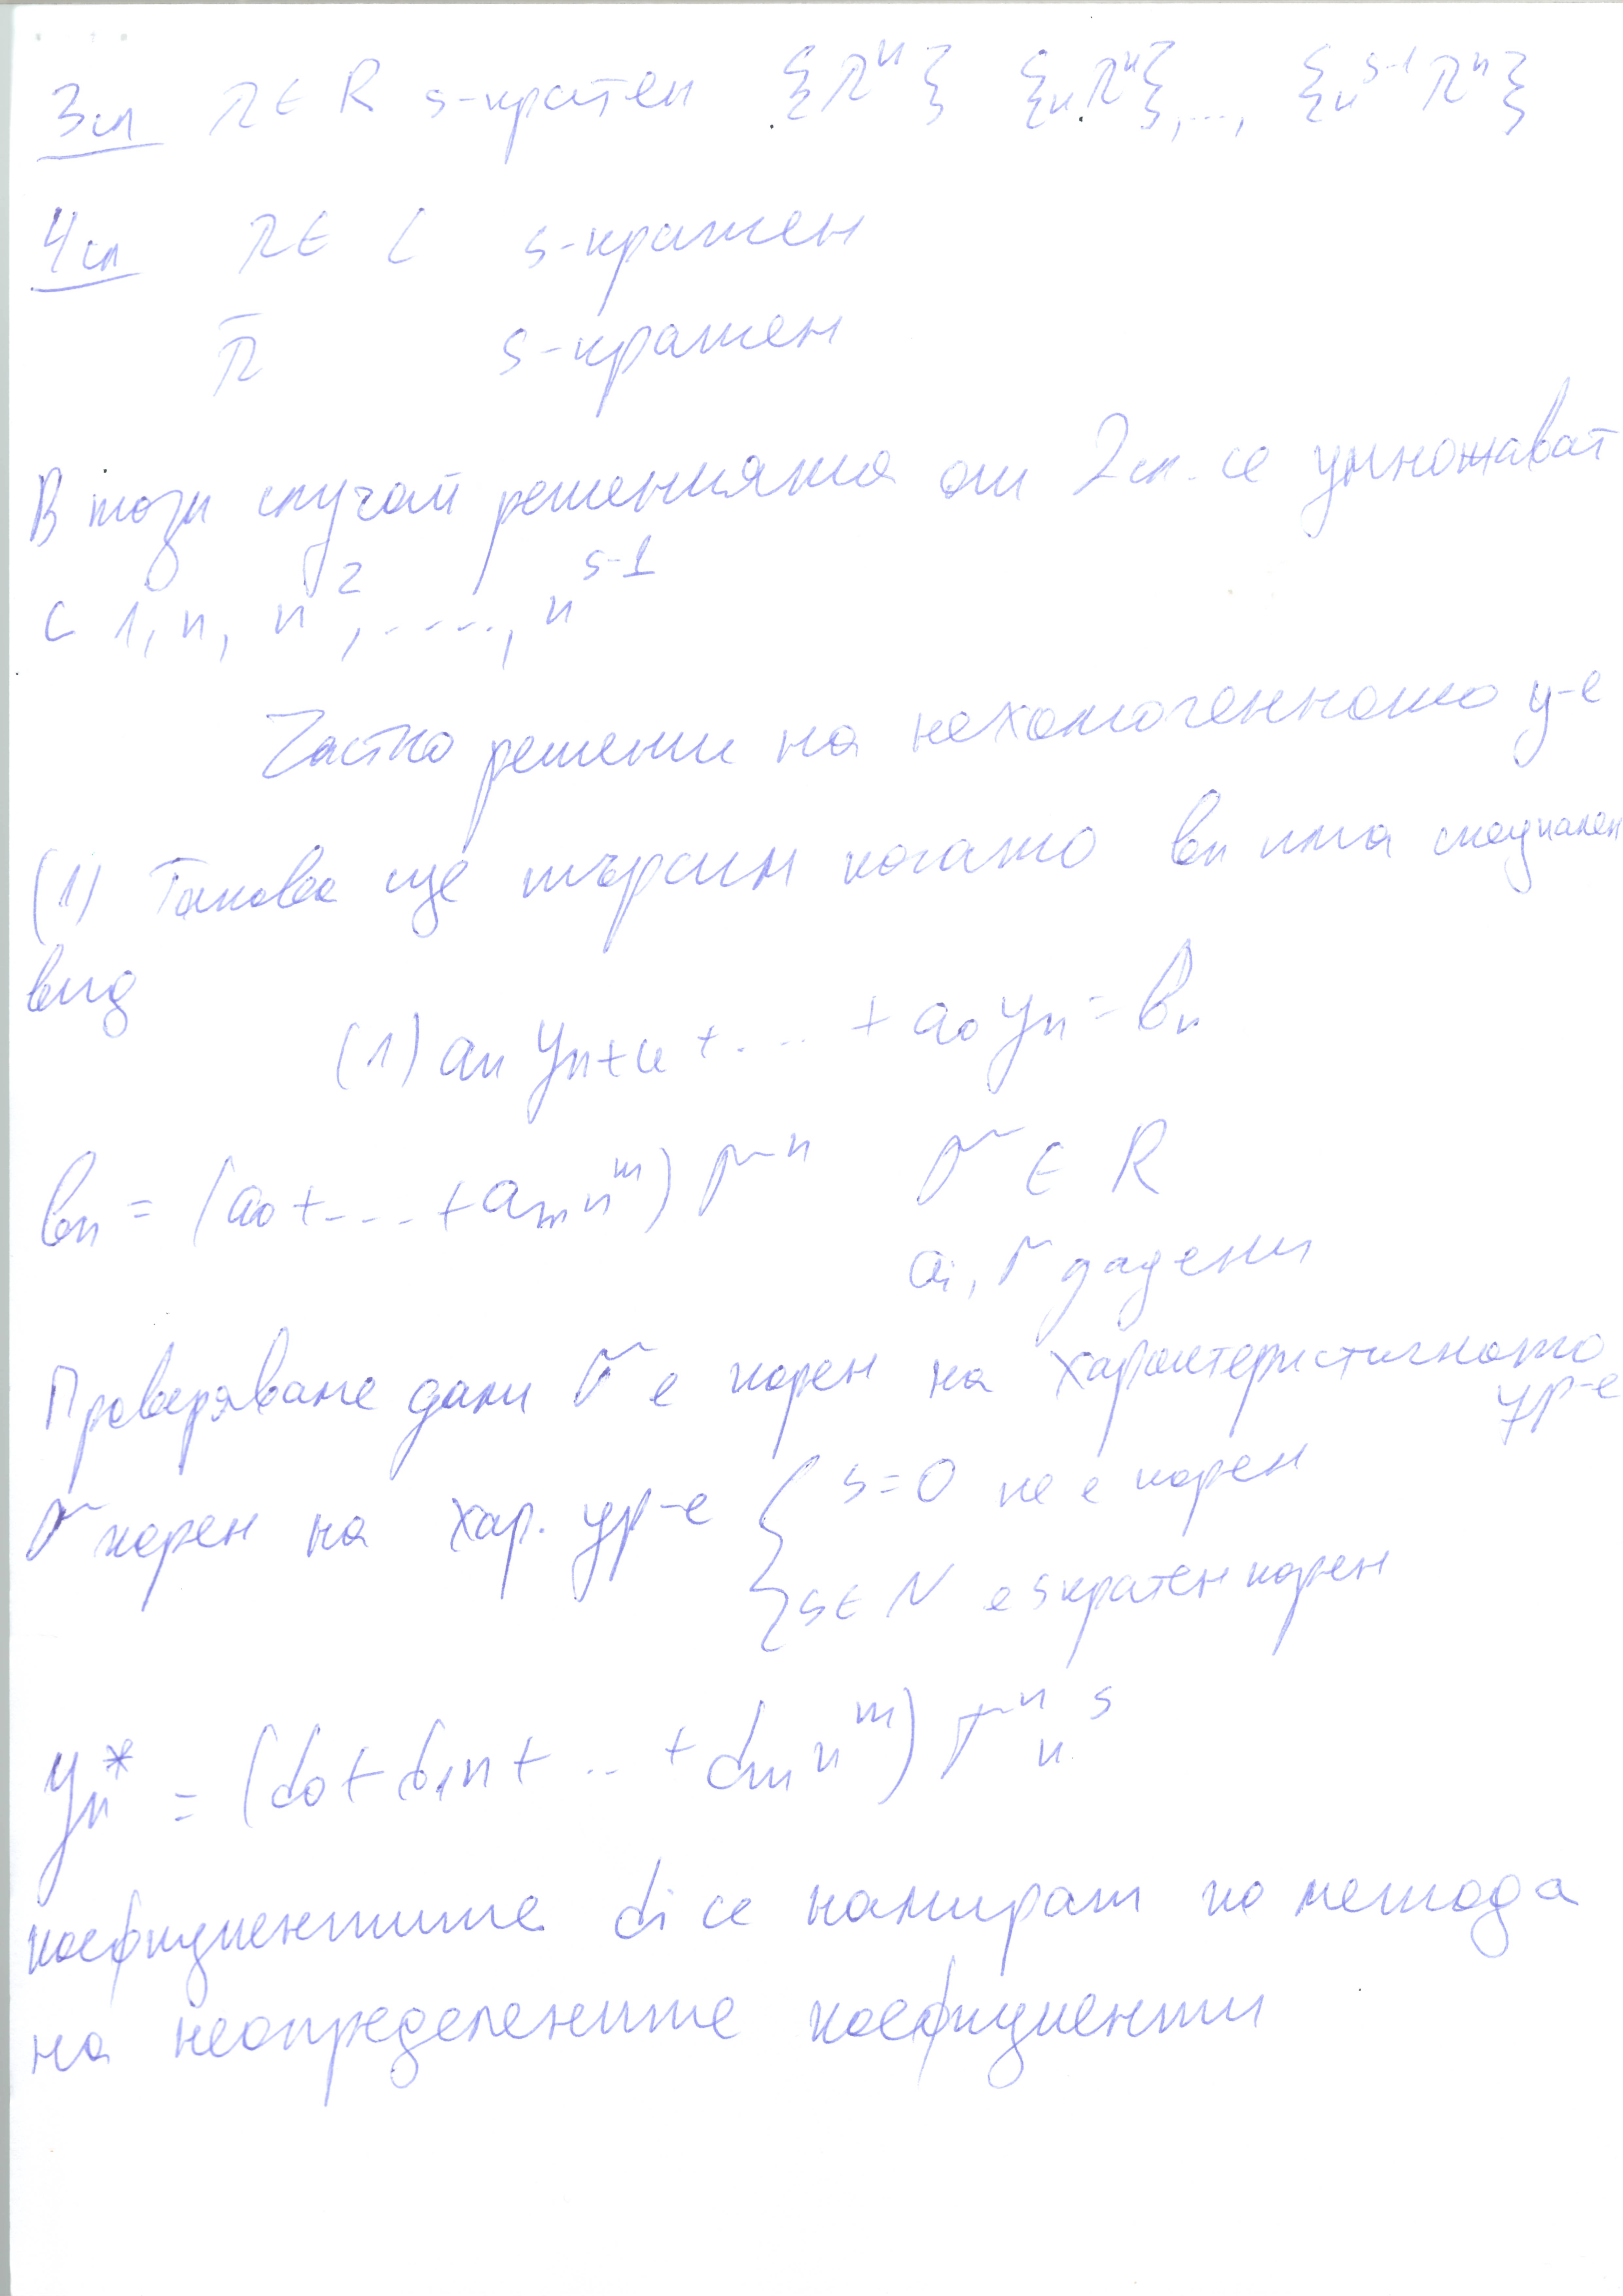 3сл λ∈R s-кратен {λⁿ} {nλⁿ},..., {nˢ⁻¹λⁿ}
4сл λ∈C s-кратен
λ̄ s-кратен
В този случай решенията от 2сл. се умножават
с 1, n, n², ....., nˢ⁻¹
Частно решение на нехомогенното у-е
(1) Такова ще търсим когато bn има специален
вид
(1) aк yn+к + .... + a₀ yn = bn
bn = (a₀ + .... + am nᵐ) μⁿ μ ∈ R
ai, μ дадени
Проверяваме дали μ е корен на характеристичното
ур-е
μ корен на хар. ур-е { s=0 не е корен
s∈N е s кратен корен
yn* = (d₀ + d₁n + .. + dm nᵐ) μⁿ nˢ
коефициентите di се намират по метода
на неопределените коефициенти